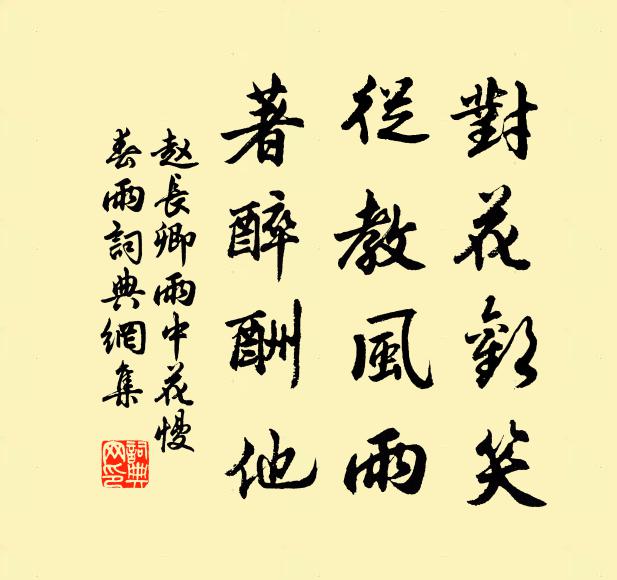 對花歡笑
從教風雨
著醉酬他
赵長卿雨中花慢
春雨詞典網集
詞典
网印